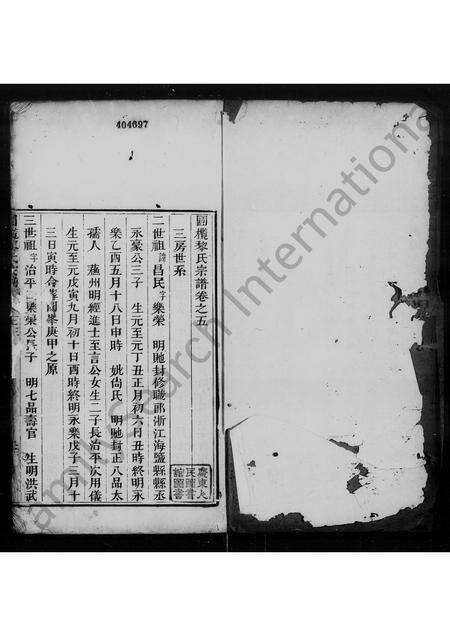 404697
圓欖黎氏宗譜卷之五
三房世系
二世祖諱昌民字樂榮 明貤封修職郎浙江海鹽縣縣丞
永豪公三子 生元至元丁丑正月初六日丑時終明永
樂乙酉五月十八日申時 妣尙氏 明貤封正八品太
孺人 蘓州明經進士至言公女生二子長治平次用儀
生元至元戊寅九月初十日酉時終明永樂戊子三月十
三日寅時合葬 庚甲之原
三世祖 字治平 樂榮公長子 明七品壽官 生明洪武
廣東人民圖書館圖書
FamilySearch International